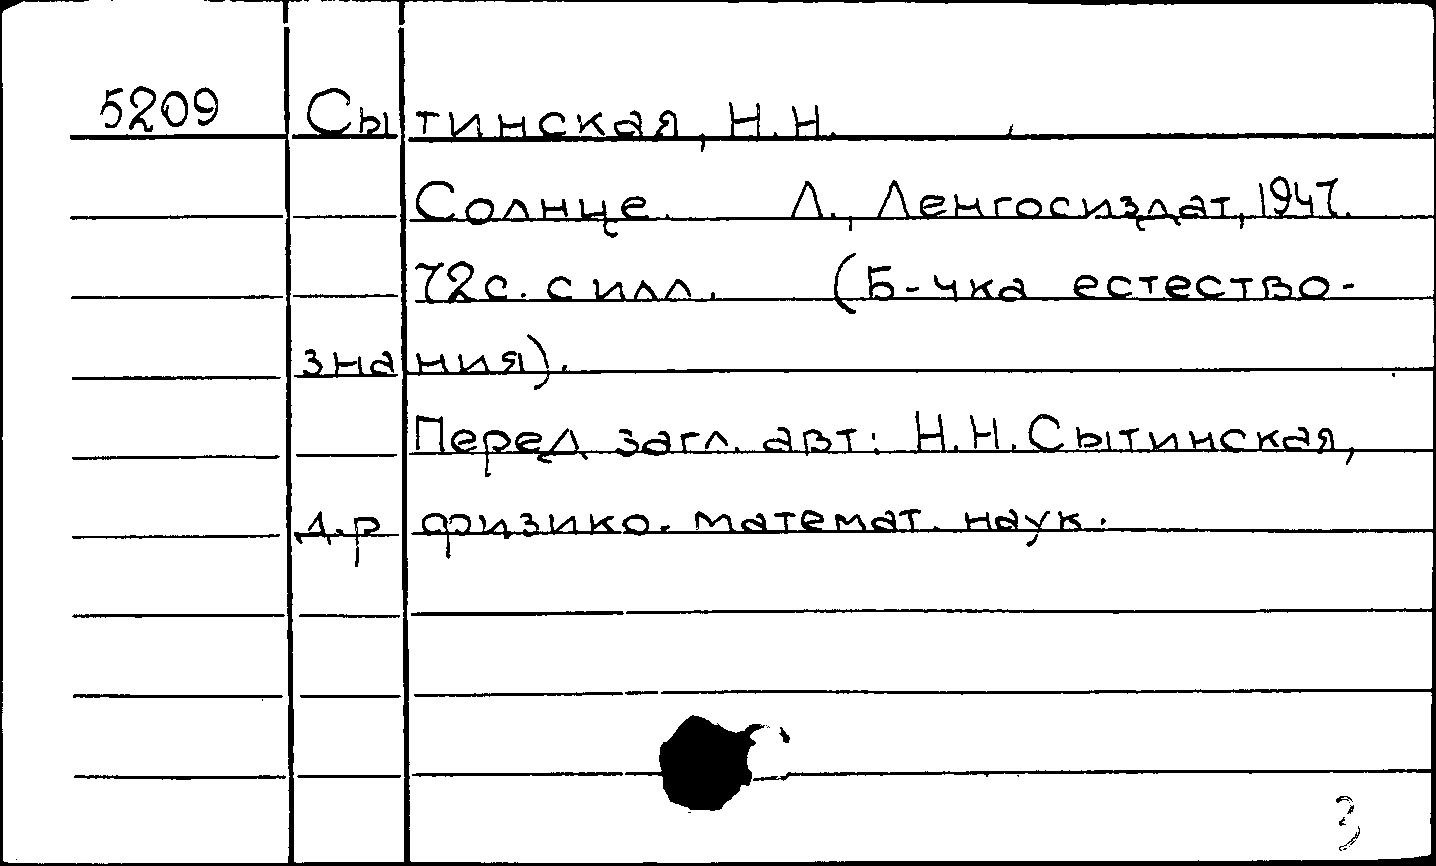 5209 Сытинская, Н.Н.
Солнце. Л., Ленгосиздат, 1947.
72с. с илл. (Б-чка естество-
знания).
Перед загл. авт: Н.Н. Сытинская,
д-р физико-математ. наук.
3